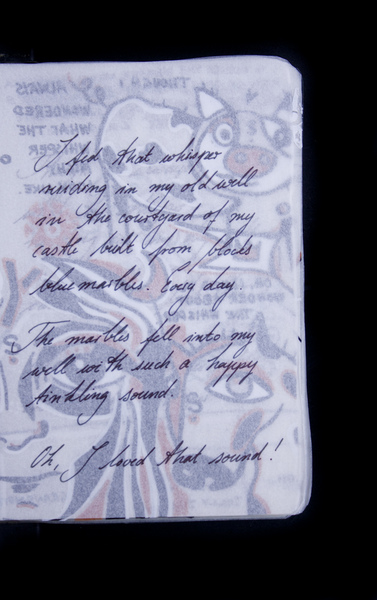 I fed that whisper
residing in my old well
in the courtyard of my
castle built from blocks
blue marbles. Every day.
The marbles fell into my
well with such a happy
tinkling sound.
Oh, I loved that sound!